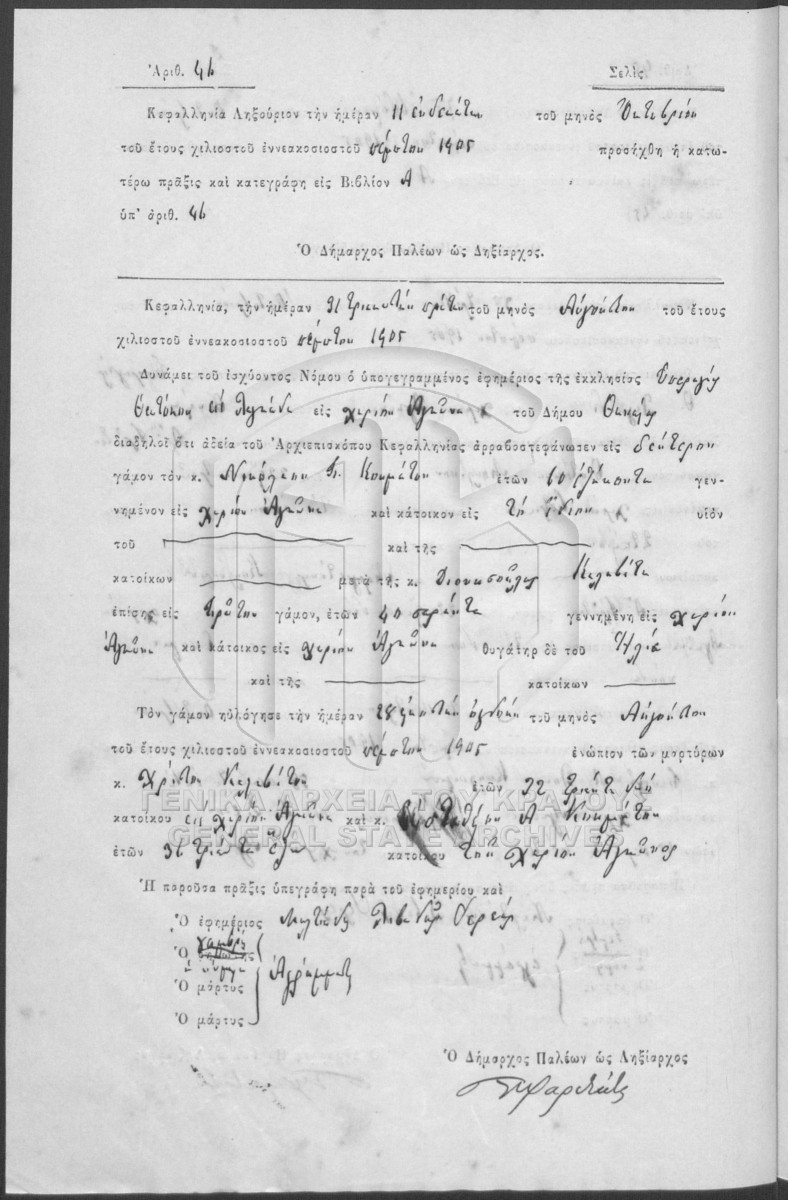 Ἀριθ. 46 Σελὶς
Κεφαλληνία Ληξούριον τὴν ἡμέραν 11 ἑνδεκάτην τοῦ μηνὸς Ὀκτωβρίου
τοῦ ἔτους χιλιοστοῦ ἐννεακοσιοστοῦ πέμπτου 1905 προσήχθη ἡ κατω-
τέρω πρᾶξις καὶ κατεγράφη εἰς Βιβλίον Α
ὑπ' ἀριθ. 46
Ὁ Δήμαρχος Παλέων ὡς Ληξίαρχος.
Κεφαλληνία, τὴν ἡμέραν 31 τριακοστὴν πρώτην τοῦ μηνὸς Αὐγούστου τοῦ ἔτους
χιλιοστοῦ ἐννεακοσιοστοῦ πέμπτου 1905
Δυνάμει τοῦ ἰσχύοντος Νόμου ὁ ὑπογεγραμμένος ἐφημέριος τῆς ἐκκλησίας Ὑπεραγίας
Θεοτόκου εἰς εἰς χωρίον Ἀγκῶνα τοῦ Δήμου
διαδηλοῖ ὅτι ἀδείᾳ τοῦ Ἀρχιεπισκόπου Κεφαλληνίας ἀρραβοστεφάνωσεν εἰς δεύτερον
γάμον τὸν κ. Νικόλαον Κουμάτον ἐτῶν 60 ἑξήκοντα γεν-
νημένον εἰς χωρίον Ἀγκῶνα καὶ κάτοικον εἰς τὸ ἴδιον υἱὸν
τοῦ καὶ τῆς
κατοίκων μετὰ τῆς κ. Διονυσούλας Καλαβίτα
ἐπίσης εἰς πρῶτον γάμον, ἐτῶν 40 σαράντα γεννημένη εἰς χωρίον
Ἀγκῶνα καὶ κάτοικος εἰς χωρίον Ἀγκῶνα θυγάτηρ δὲ τοῦ Ἠλία
καὶ τῆς κατοίκων
Τὸν γάμον ηὐλόγησε τὴν ἡμέραν 28 εἰκοστὴν ὀγδόην τοῦ μηνὸς Αὐγούστου
τοῦ ἔτους χιλιοστοῦ ἐννεακοσιοστοῦ πέμπτου 1905 ἐνώπιον τῶν μαρτύρων
κ. Χρίστου Καλαβίτου ἐτῶν 32 τριάντα δύο
ΓΕΝΙΚΑ ΑΡΧΕΙΑ ΤΟΥ ΚΡΑΤΟΥΣ
κατοίκου εἰς χωρίον Ἀγκῶνα καὶ κ. Εὐσταθίου Α Κουμάτου
GENERAL STATE ARCHIVES
ἐτῶν 36 τριάντα ἕξι κατοίκου τοῦ χωρίου Ἀγκῶνος
Ἡ παροῦσα πρᾶξις ὑπεγράφη παρὰ τοῦ ἐφημερίου καὶ
Ὁ ἐφημέριος Μιλτιάδης Ἱερεύς
Ὁ γαμβρὸς
Ὁ μάρτυς Ἀγράμματοι
Ὁ μάρτυς
Ὁ Δήμαρχος Παλέων ὡς Ληξίαρχος